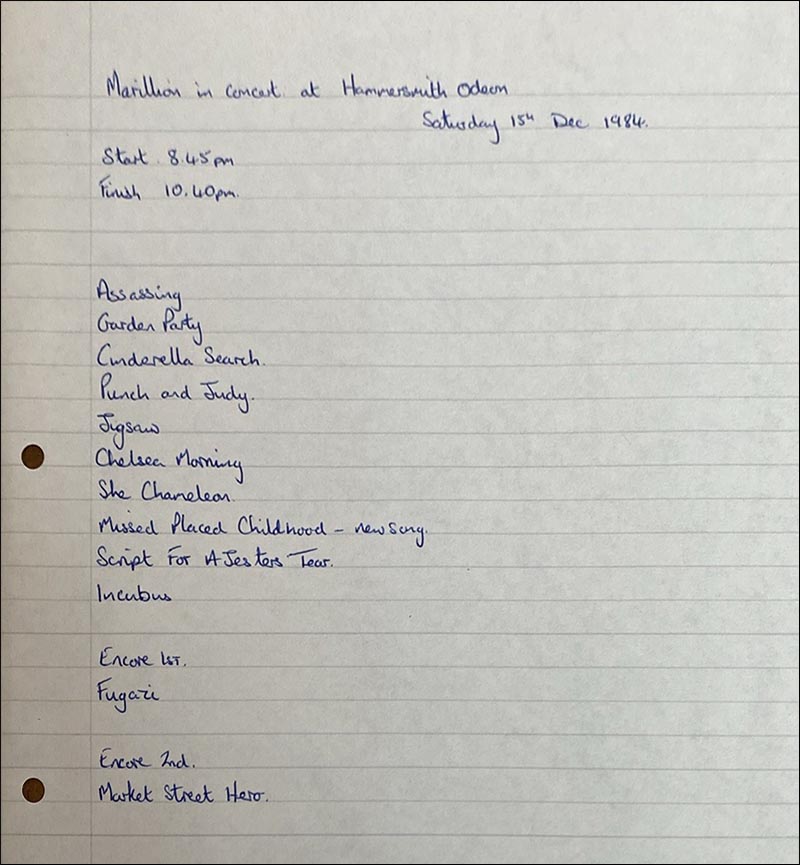 Marillion in concert. at Hammersmith Odeon
Saturday 15th Dec 1984.
Start 8.45pm
Finish 10.40pm.
Assassing
Garden Party
Cinderella Search.
Punch and Judy.
Jigsaw
Chelsea Morning
She Chameleon.
Missed Placed Childhood - new song.
Script For A Jesters Tear.
Incubus
Encore 1st.
Fugazi
Encore 2nd.
Market Street Hero.